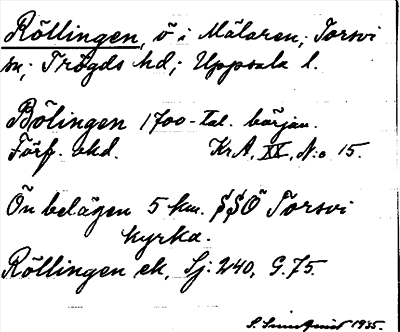 Röllingen, ö i Mälaren; Torsvi
sn; Trögds hd; Uppsala l.
Bölingen 1700-tal. början.
Förf. okd. KrA, XX, N:o 15.
Ön belägen 5 km. SSÖ Torsvi
kyrka.
Röllingen ek, Sj: 240, G. 75.
S. Sundquist 1935.